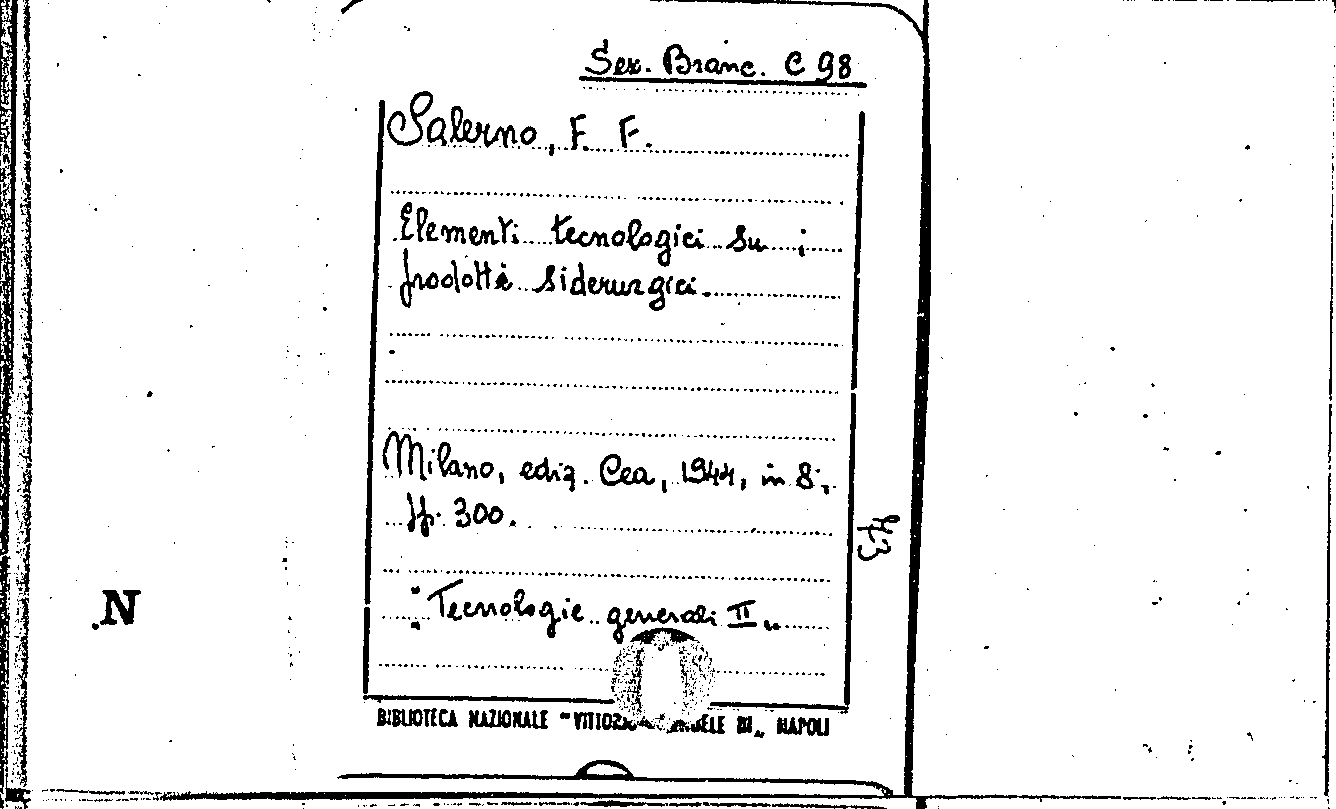 Sez. Branc. C 98
Salerno, F. F.
Elementi tecnologici su i
prodotti siderurgici.
Milano, ediz. Cea, 1944, in 8°,
pp. 300.
43
"Tecnologie generali II„
N
BIBLIOTECA NAZIONALE "VITTORIO EMANUELE III„ NAPOLI